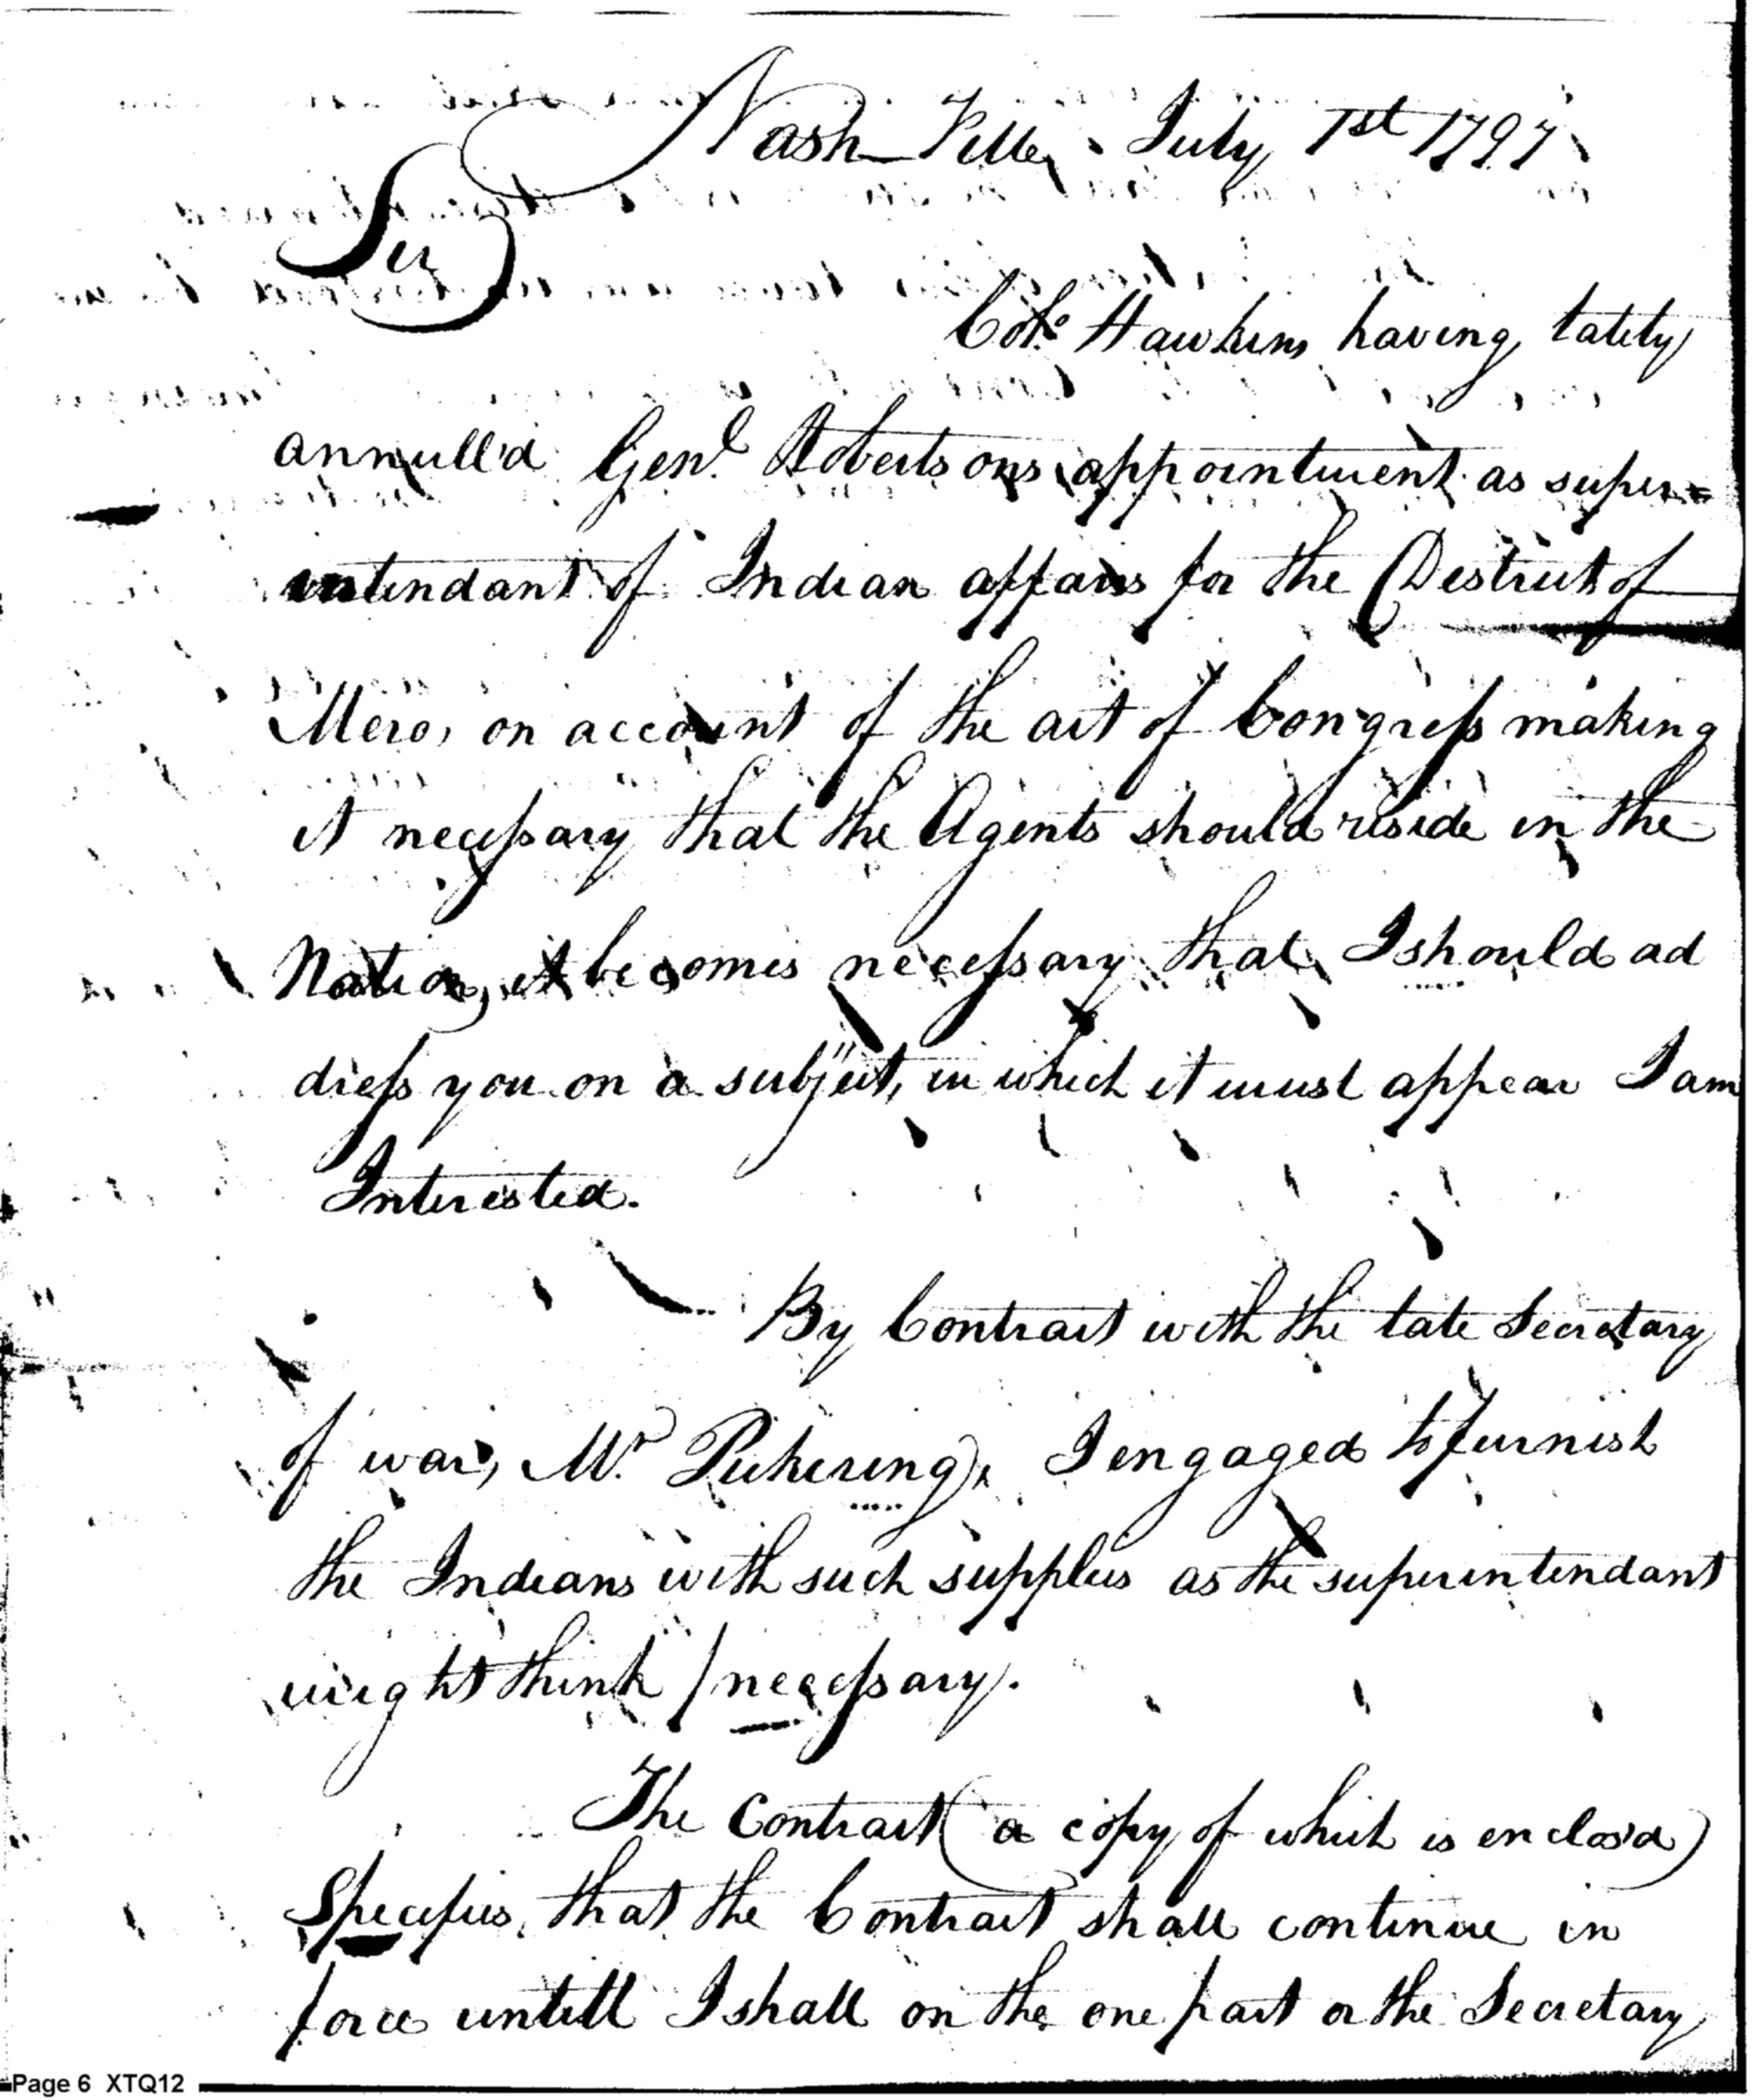 Nash-Ville, July 1st 1797
Sir
Colo. Hawkins having lately
annull'd Genl. Robertsons appointment as super=
intendant of Indian affairs for the District of
Mero, on account of the act of Congress making
it necessary that the Agents should reside in the
Nation, it becomes necessary that I should ad
dress you on a subject, in which it must appear I am
Interested.
By Contract with the late Secretary
of war, Mr. Pickering, I engaged to furnish
the Indians with such supplies as the superintendant
might think necessary.
The Contract (a copy of which is enclos'd)
Specifies, that the Contract shall continue in
force untill I shall on the one part or the Secretary
Page 6 XTQ12